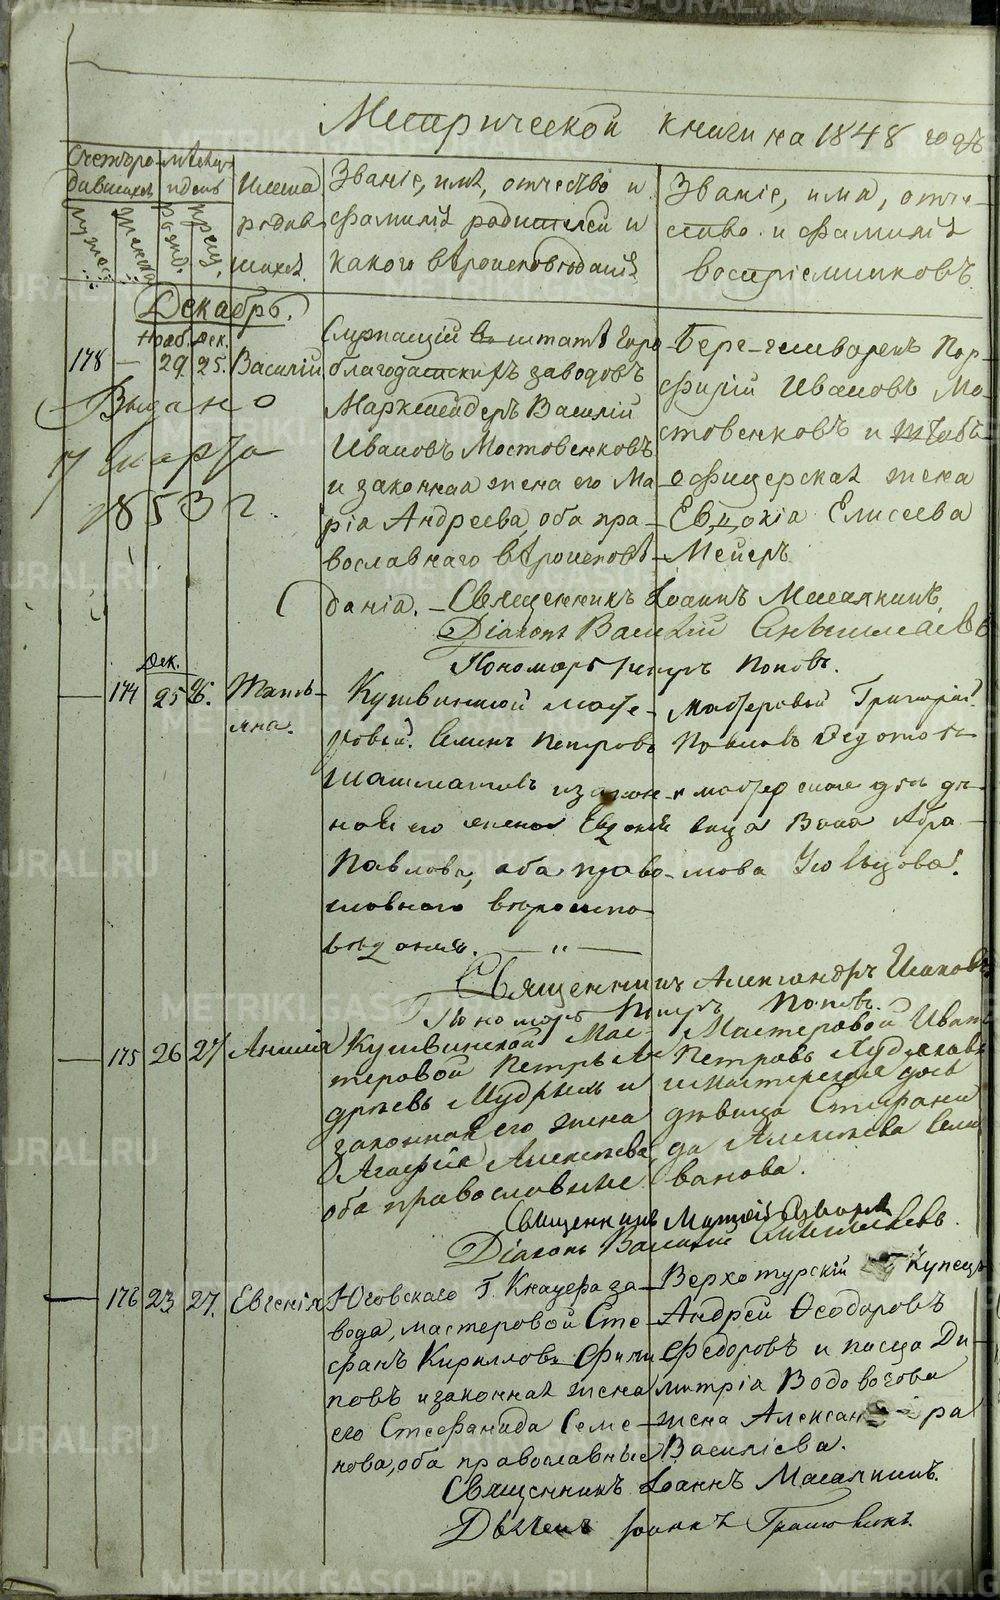 Метрической книги на 1848 годъ
Счетъ ро-
дившихся
мѣсяцъ
и день
Имена
родив-
шихся
Званіе, имя, отчество и
фамилія родителей и
какого вѣроисповѣданія
Званіе, имя, отче-
ство и фамилія
воспріемниковъ
Декабрь.
Нояб. Дек.
178 — 29 25. Василій
Выдано
17 марта
1853 г.
Служащій въ штатѣ Горо-
благодатскихъ заводовъ
Маркшейдеръ Василій
Ивановъ Мостовенковъ
и законная жена его Ма-
рія Андреева, оба пра-
вославнаго вѣроисповѣ-
данія.
Порфирій Ивановъ Мо-
стовенковъ и Штабъ-
офицерская жена
Евдокія Елисеева
Мейеръ.
Священникъ Іоаннъ
Діаконъ Василій
Пономарь Петръ Поповъ.
Дек.
— 174 25 26. Татья-
яна.
Кушвинской масте-
ровой Семенъ Петровъ
и закон-
ная его жена Евдокія
Павлова, оба право-
славнаго вѣроиспо-
вѣданія. — „ —
Мастеровой Григорій
Павловъ Федотовъ
и мастерская дочь дѣ-
вица Абра-
мова
Священникъ Александръ
Пономарь Петръ Поповъ.
— 175 26 27 Анисія
Кушвинской Мас-
теровой Петръ Ан-
дреевъ Мудрыхъ и
законная его жена
Агафія Алексѣева,
оба православные
Мастеровой Иванъ
Петровъ
и мастерская дочь
дѣвица Стефани-
да Алексѣева Сели-
ванова.
Священникъ
Діаконъ Василій
— 176 23 27. Евгенія
Юговскаго Г. Кнауфа за-
вода, мастеровой Сте-
фанъ Кирилловъ Филип-
повъ и законная жена
его Стефанида Семе-
нова, оба православные
Верхотурскій Купецъ
Андрей Ѳеодоровъ
Федоровъ и писца Ди-
митрія Водовозова
жена Александра
Василіева.
Священникъ Іоаннъ